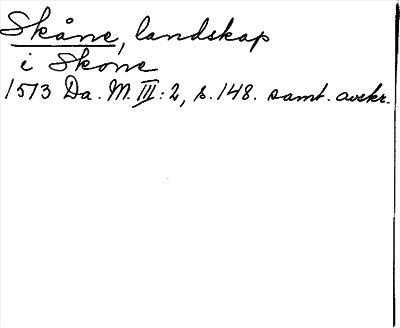 Skåne, landskap
i Skone
1513 Da. M. III: 2, s. 148. samt. avskr.